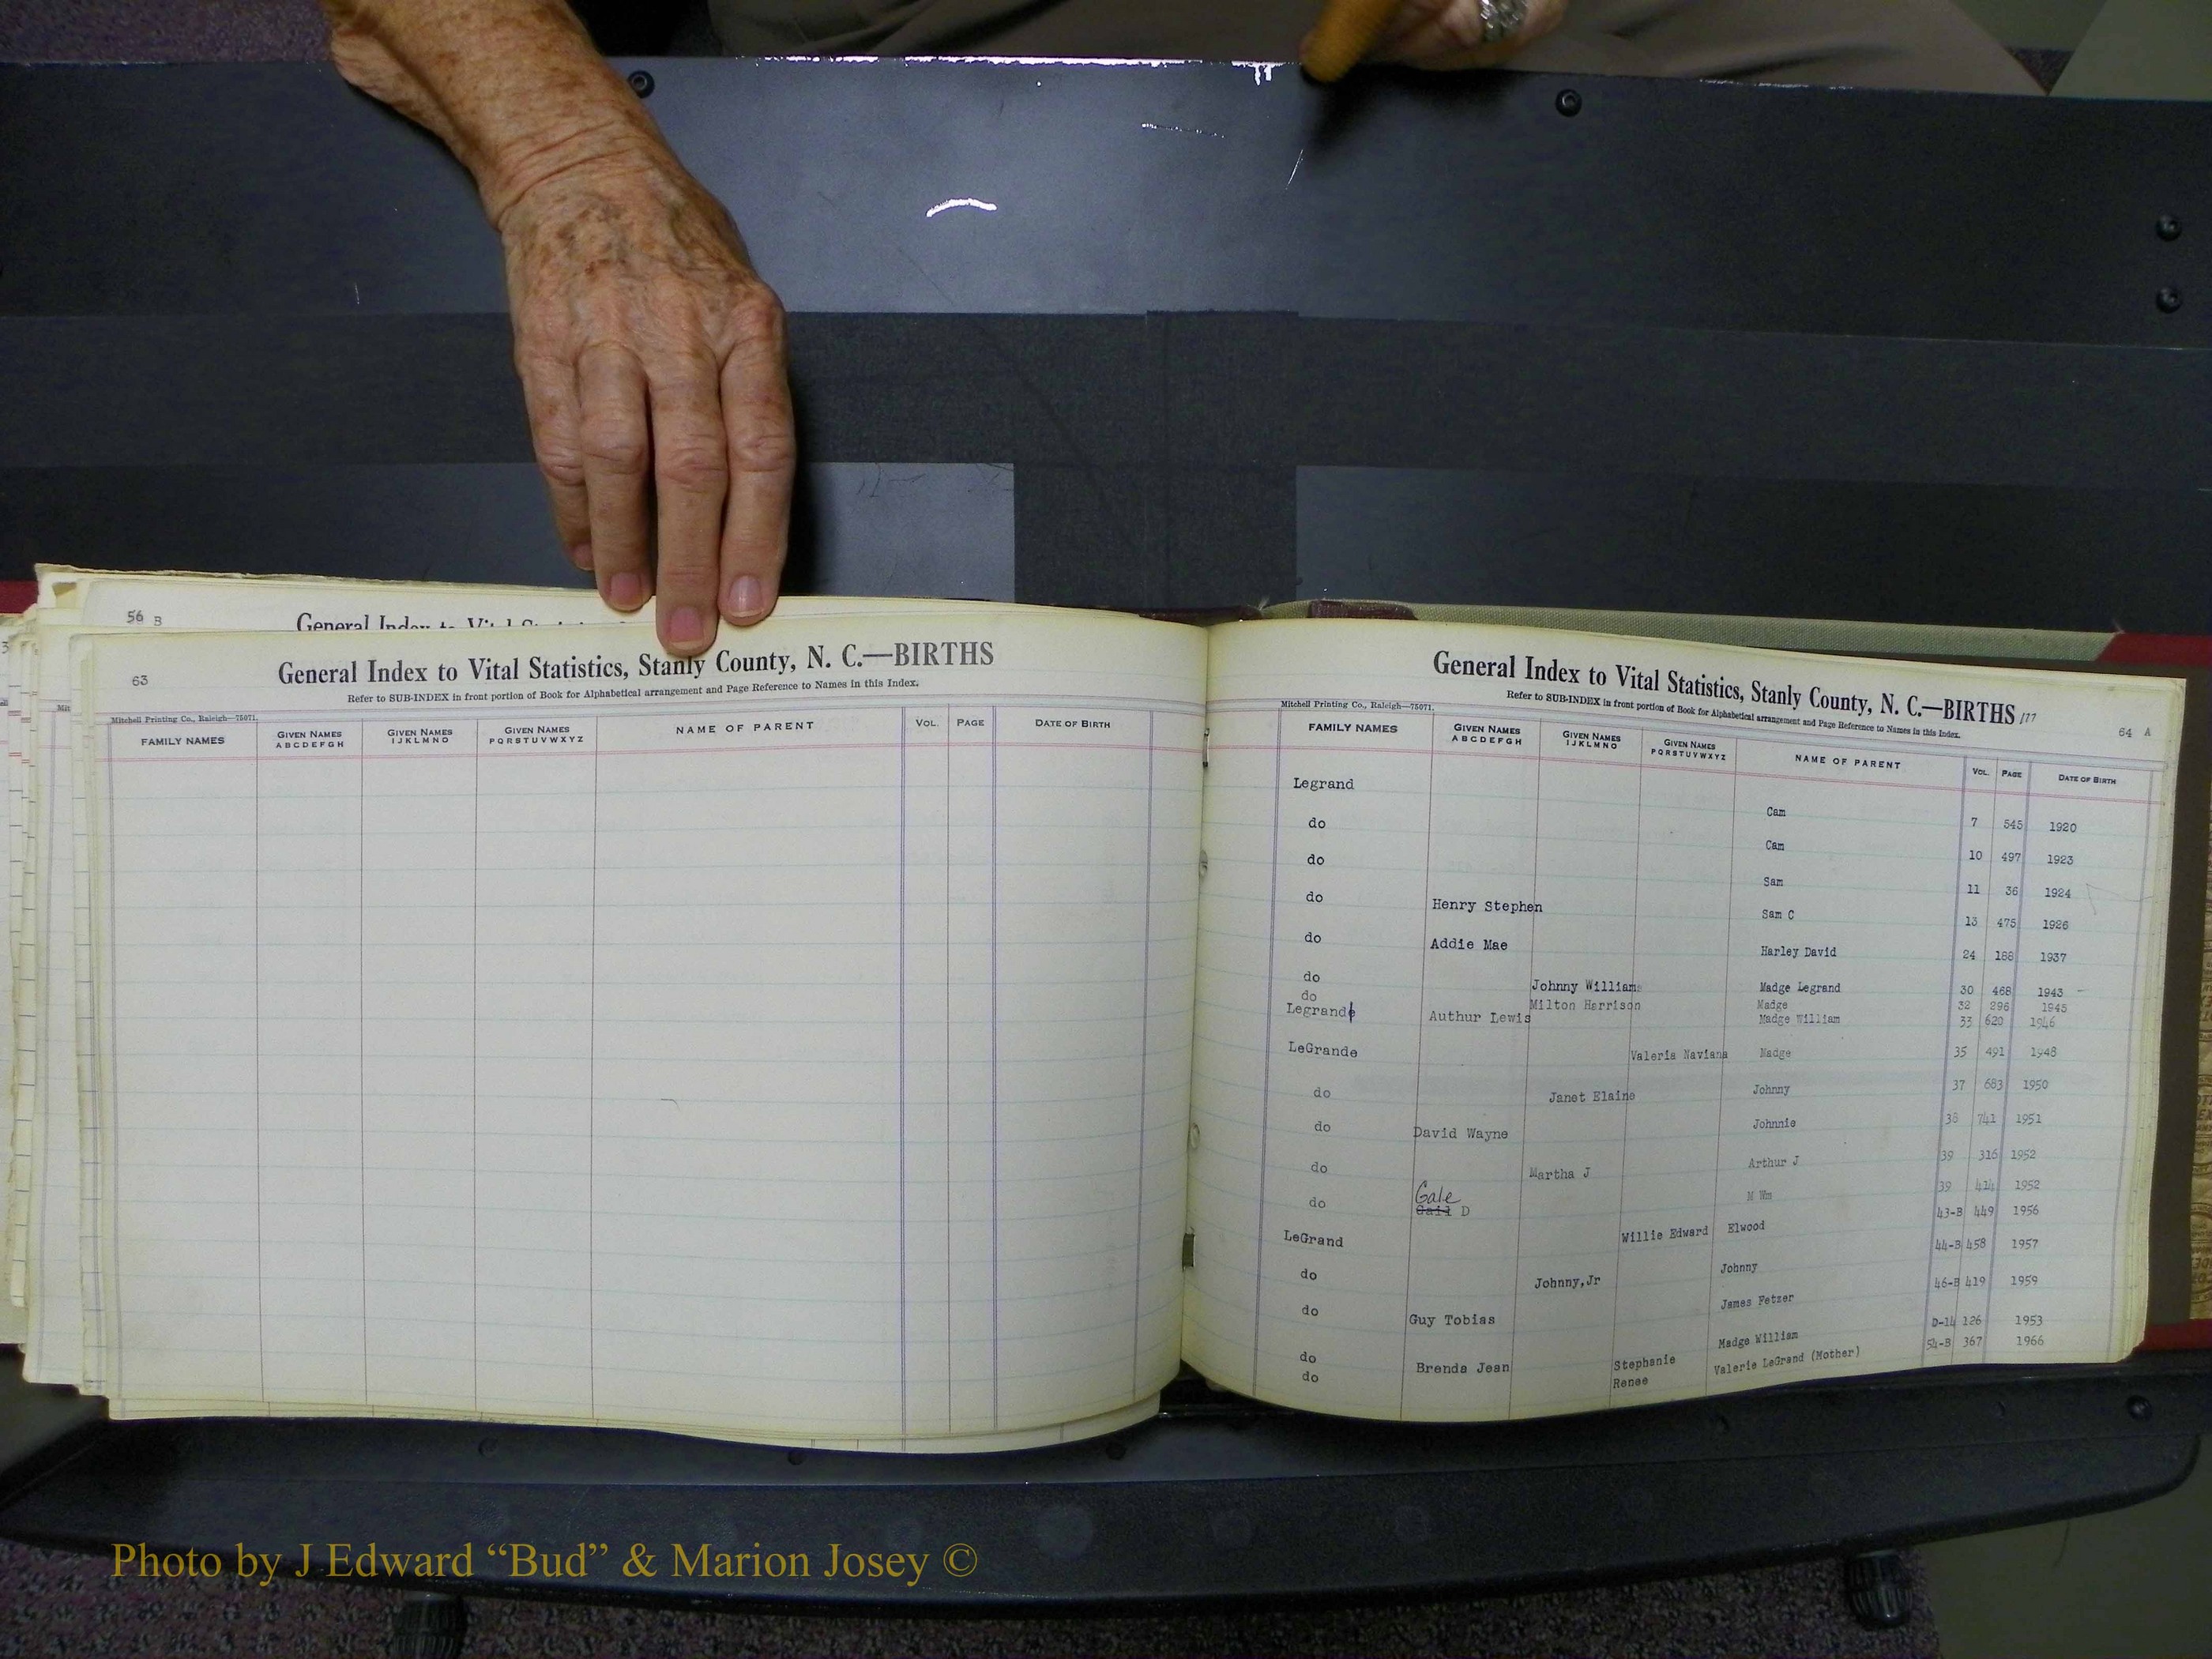 56 B
General Index to Vital Statistics
63
General Index to Vital Statistics, Stanly County, N. C.—BIRTHS
Refer to SUB-INDEX in front portion of Book for Alphabetical arrangement and Page Reference to Names in this Index.
Mitchell Printing Co., Raleigh—75071.
FAMILY NAMES GIVEN NAMES ABCDEFGH GIVEN NAMES IJKLMNO GIVEN NAMES PQRSTUVWXYZ NAME OF PARENT VOL. PAGE DATE OF BIRTH
General Index to Vital Statistics, Stanly County, N. C.—BIRTHS 177
Refer to SUB-INDEX in front portion of Book for Alphabetical arrangement and Page Reference to Names in this Index.
64 A
Mitchell Printing Co., Raleigh—75071.
FAMILY NAMES GIVEN NAMES ABCDEFGH GIVEN NAMES IJKLMNO GIVEN NAMES PQRSTUVWXYZ NAME OF PARENT VOL. PAGE DATE OF BIRTH
Legrand Cam 7 545 1920
do Cam 10 497 1923
do Sam 11 36 1924
do Henry Stephen Sam C 13 475 1926
do Addie Mae Harley David 24 188 1937
do Johnny Williams Madge Legrand 30 468 1943
do Milton Harrison Madge 32 296 1945
Legrande Authur Lewis Madge William 33 620 1946
LeGrande Valeria Naviana Madge 35 491 1948
do Janet Elaine Johnny 37 683 1950
do David Wayne Johnnie 38 741 1951
do Martha J Arthur J 39 316 1952
do Gale Gail D M Wm 39 414 1952
LeGrand Willie Edward Elwood 43-B 449 1956
do Johnny,Jr Johnny 44-B 458 1957
do Guy Tobias James Fetzer 46-B 419 1959
do Brenda Jean Madge William D-14 126 1953
do Stephanie Renee Valerie LeGrand (Mother) 54-B 367 1966
Photo by J Edward “Bud” & Marion Josey ©